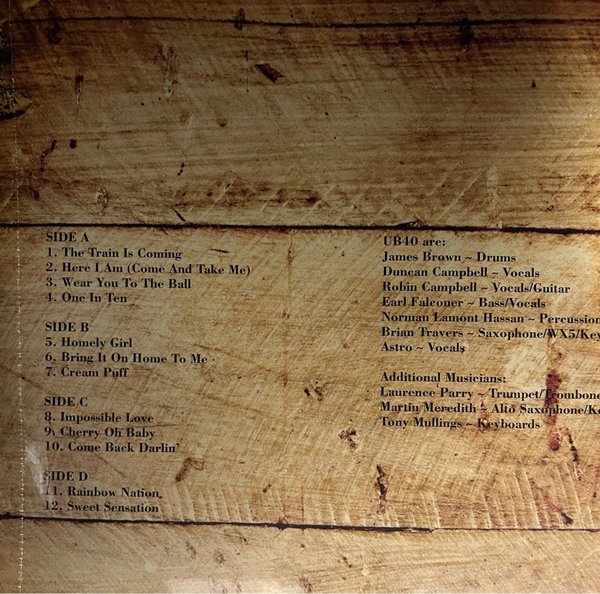 SIDE A
1. The Train Is Coming
2. Here I Am (Come And Take Me)
3. Wear You To The Ball
4. One In Ten
SIDE B
5. Homely Girl
6. Bring It On Home To Me
7. Cream Puff
SIDE C
8. Impossible Love
9. Cherry Oh Baby
10. Come Back Darlin'
SIDE D
11. Rainbow Nation
12. Sweet Sensation
UB40 are:
James Brown ~ Drums
Duncan Campbell ~ Vocals
Robin Campbell ~ Vocals/Guitar
Earl Falconer ~ Bass/Vocals
Norman Lamont Hassan ~ Percussion
Brian Travers ~ Saxophone/WX5/Key
Astro ~ Vocals
Additional Musicians:
Laurence Parry ~ Trumpet/Trombone
Martin Meredith ~ Alto Saxophone/Ke
Tony Mullings ~ Keyboards